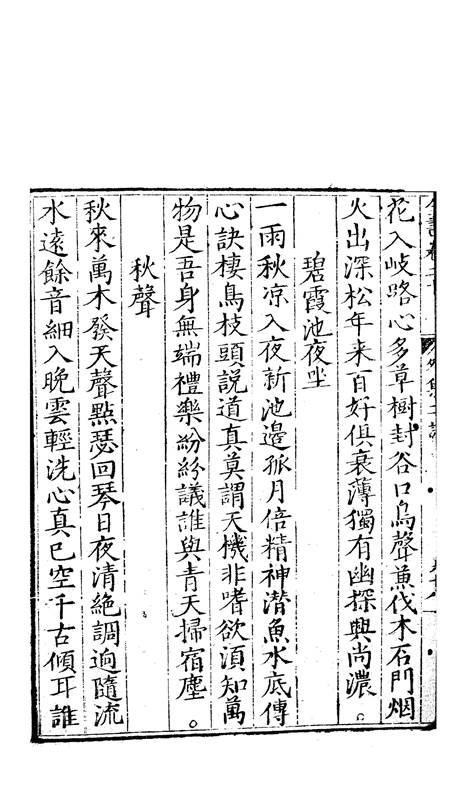 花入岐路心多草樹封谷口鳥聲兼伐木石門烟
火出深松年来百好俱衰薄獨有幽探興尚濃。
碧霞池夜坐
一雨秋凉入夜新池邊孤月倍精神潜魚水底傳
心訣棲鳥枝頭說道真莫謂天機非嗜欲湏知萬
物是吾身無端禮樂紛紛議誰與青天掃宿塵。
秋聲
秋來萬木發天聲點瑟回琴日夜清絶調逈隨流
水遠餘音細入晚雲輕洗心真已空千古傾耳誰